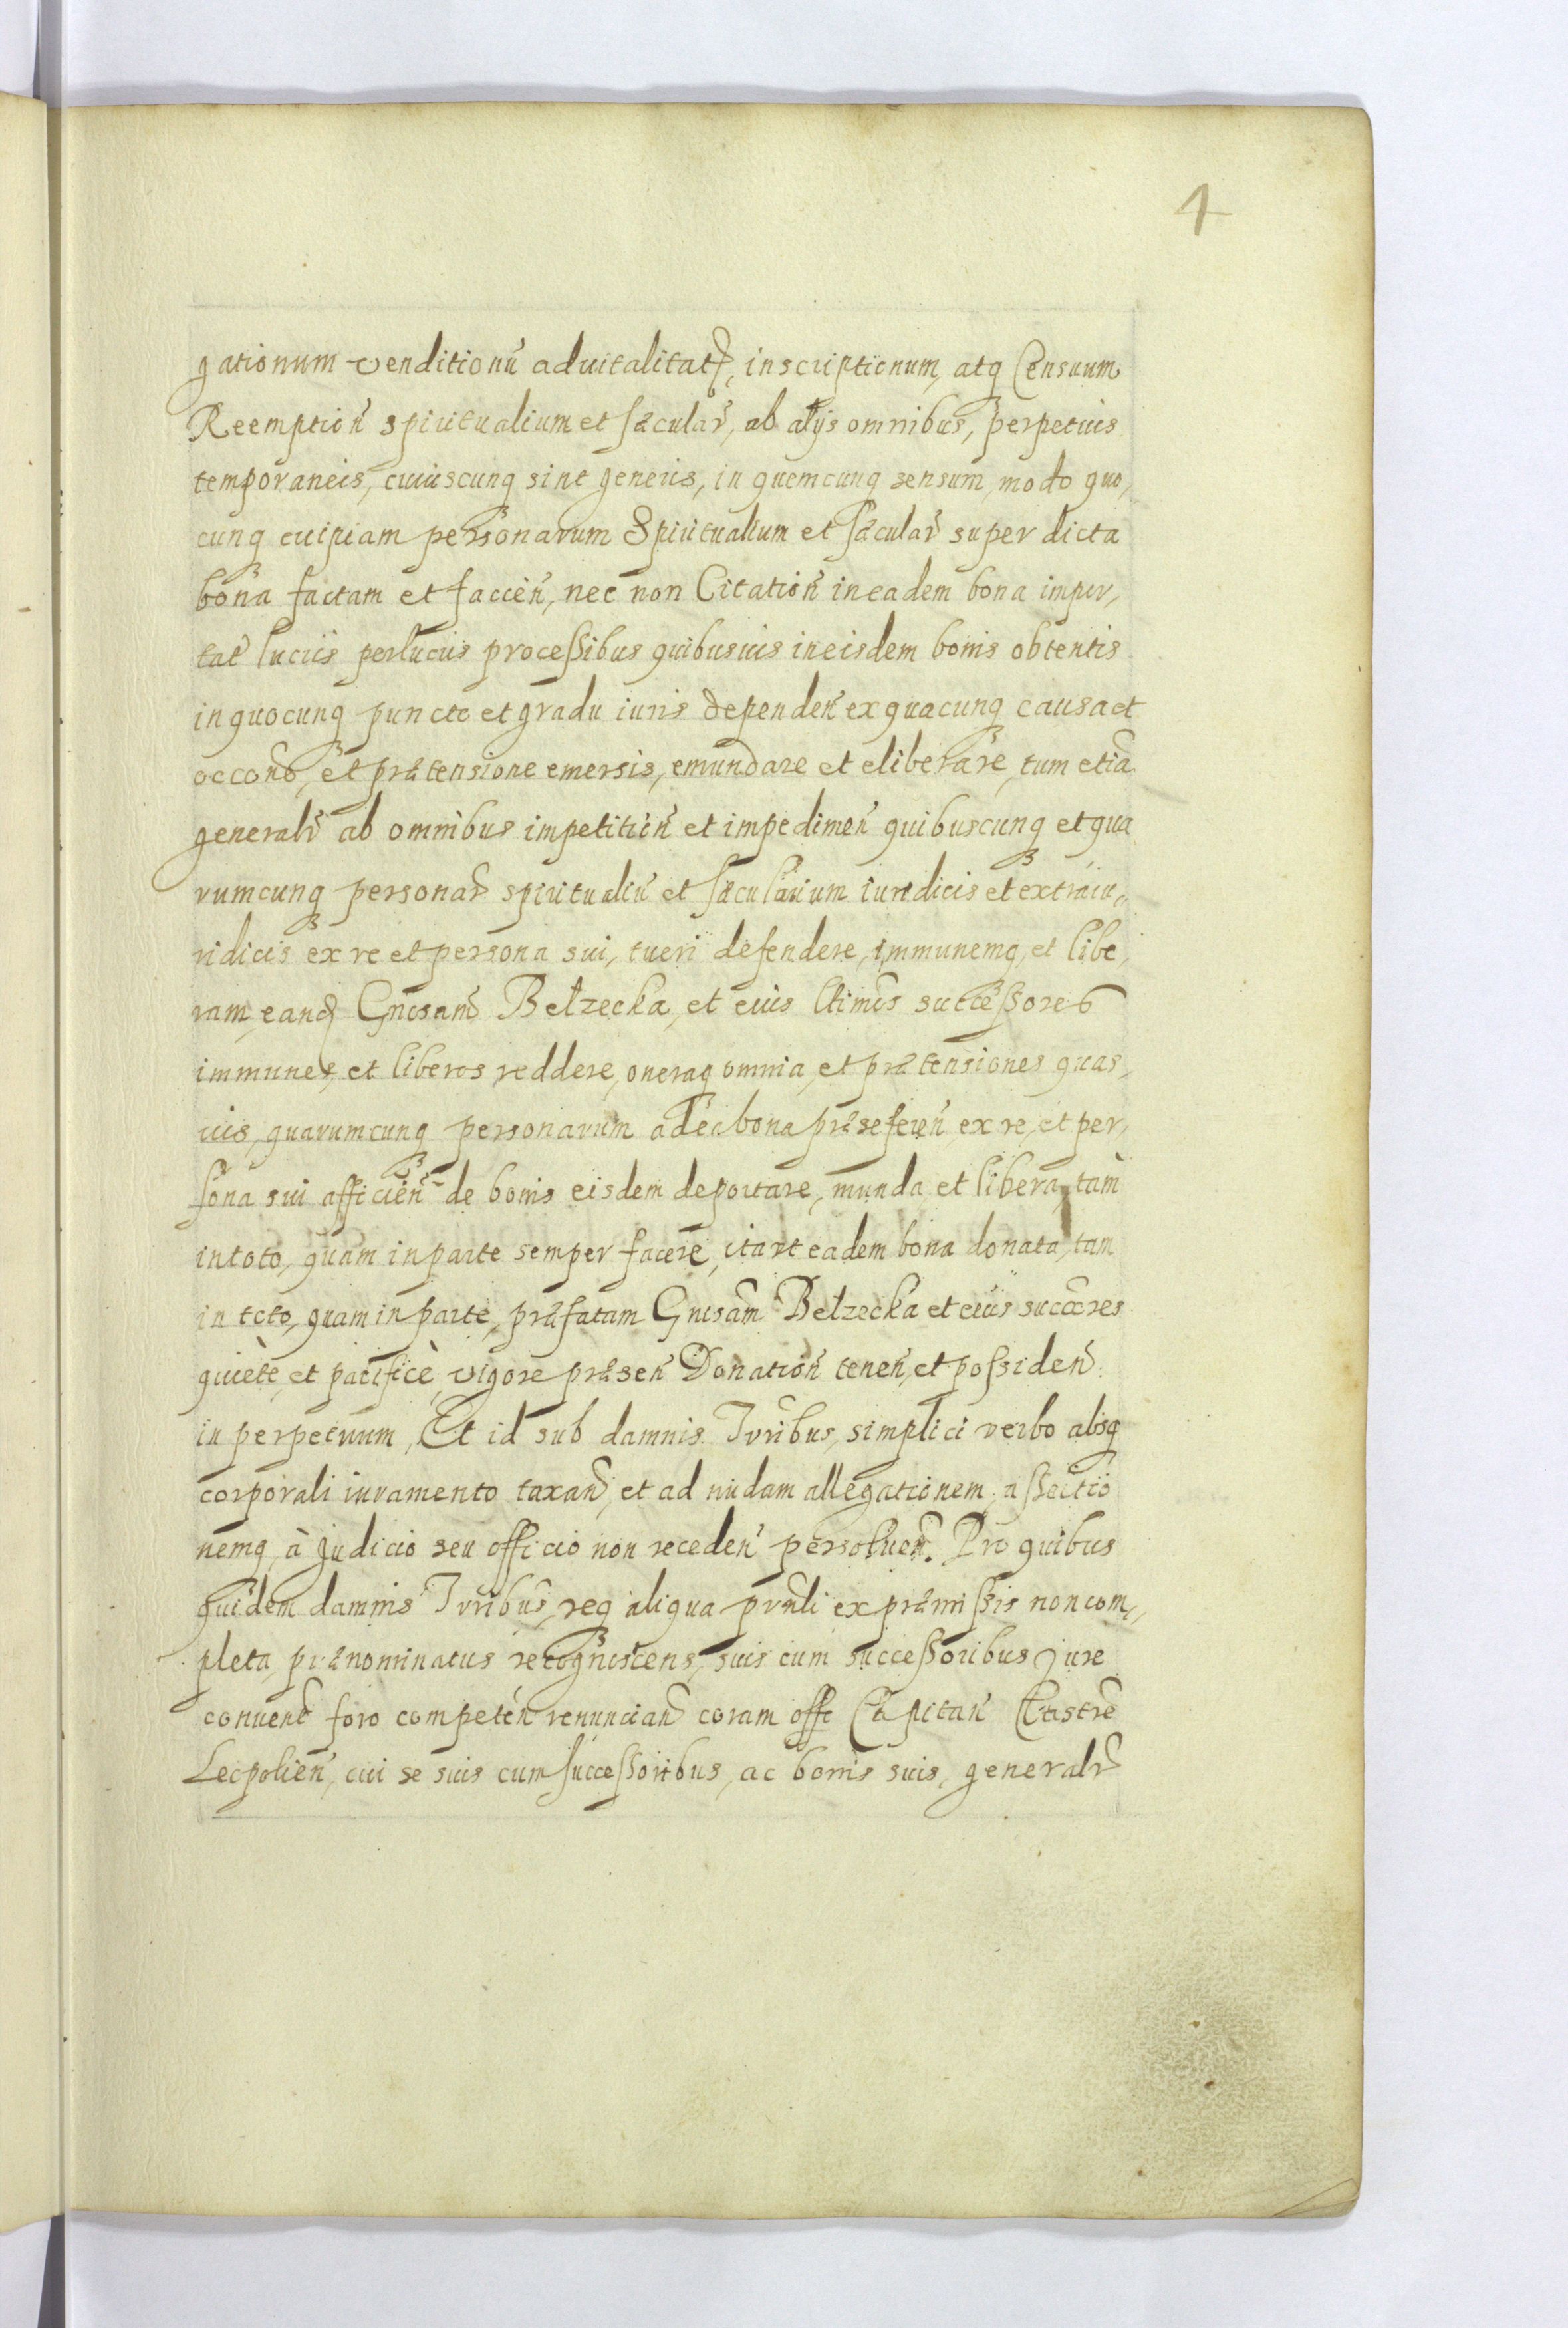 4
gationum venditionū aduitalitat, inscriptionum, atq Censuum
Reemption̄ spiritualium et sæcular̄, ab alijs omnibus, perpetuis
temporaneis, cuiuscunq sint generis, in quemcunq sensum, modo quo,
cunq cuipiam personarum Spiritualium et sæcular̄ super dicta
bona factam et faccien̄, nec non Citation̄ in eadem bona impor,
tat̄ lucris perlucris processibus quibusuis in eisdem bonis obtentis
in quocunq puncto et gradu iuris dependen̄ ex quacunq causa et
occone, et prætensione emersis, emundare et eliberare, tum etiā
generalr̄ ab omnibus impetition̄ et impedimen̄ quibuscunq et qua
rumcunq personar̄ spiritualiū et sæcularium iuridicis et extraiu,,
ridicis ex re et persona sui, tueri defendere, immunemq, et libe,
ram, eand Gnosam Bełzecka, et eius ltimos successores
immunes, et liberos reddere, oneraq omnia, et prætensiones quas,
uis, quarumcunq personarum ad ea bona præseferen̄ ex re, et per,
sona sui afficien̄ de bonis eisdem deportare, munda et libera, tam
in toto, quam in parte semper facere, ita vt eadem bona donata, tam
in toto, quam in parte, præfatam Gnosam Bełzecka et eius succores
quietè, et pacificè, vigore præsen̄ Donation̄ tenen̄, et possiden̄.
in perpetuum, Et id sub damnis Trribus, simplici verbo absq
corporali iuramento taxand, et ad nudam allegationem, assertio
nemq, à Judicio seu officio non receden̄ persoluen̄. Pro quibus
quidem damnis Trribus, req aliqua prmdi ex præmissis non com,,
pleta, prænominatus recognoscens, suis cum successoribus jure
conuent foro competen̄ renunciand coram offo Capitan̄ Castren
Leopolien̄, cui se suis cum successoribus, ac bonis suis, generalr̄